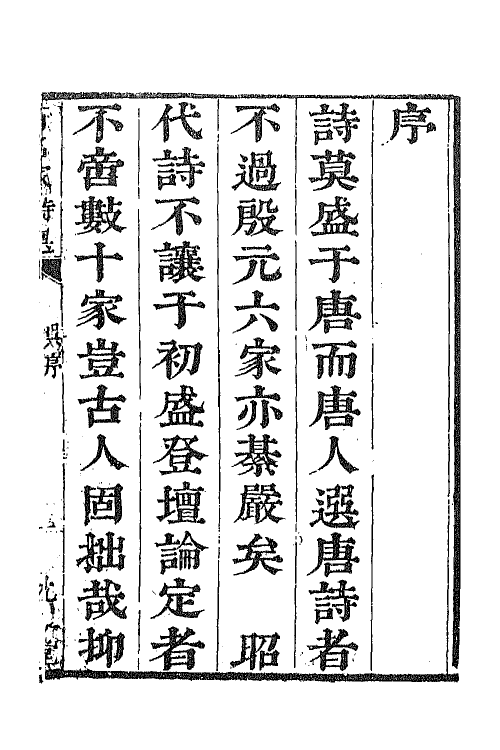 序
詩莫盛于唐而唐人選唐詩者
不過殷元六家亦綦嚴矣　昭
代詩不讓于初盛登壇論定者
不啻數十家豈古人固拙哉抑
吳序